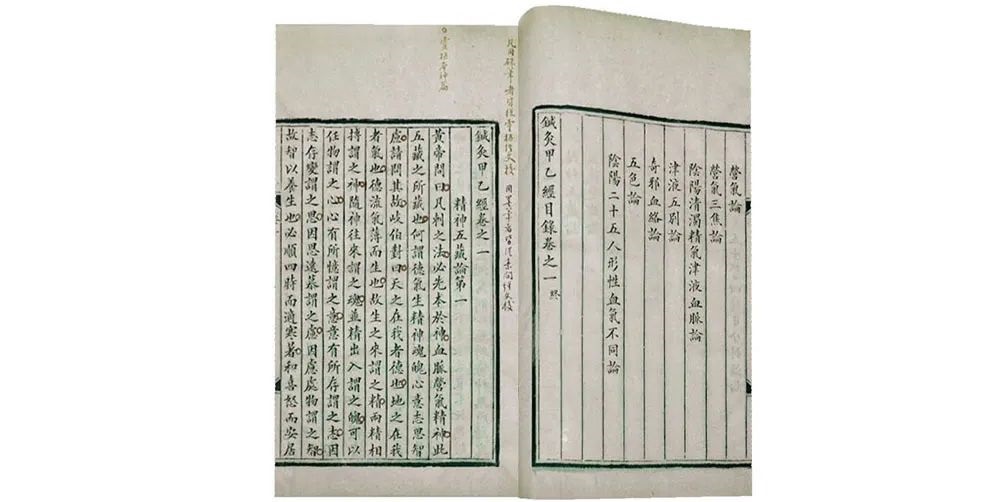 營氣論
營氣三焦論
陰陽清濁精氣津液血脈論
津液五別論
奇邪血絡論
五色論
陰陽二十五人形性血氣不同論
鍼灸甲乙經目錄卷之一 終
凡用硃筆者皆從靈樞經文校
用墨筆者皆從素問經文校
鍼灸甲乙經卷之一
精神五藏論第一
靈樞本神篇
黃帝問曰凡刺之法必先本於神血脈營氣精神此
五藏之所藏也何謂德氣生精神魂魄心意志思智
慮請問其故歧伯對曰天之在我者德也地之在我
者氣也德流氣薄而生也故生之來謂之精兩精相
搏謂之神隨神往來謂之魂並精出入謂之魄可以
任物謂之心心有所憶謂之意意有所存謂之志因
志存變謂之思因思遠慕謂之慮因慮處物謂之智
故智以養生也必順四時而適寒暑和喜怒而安居